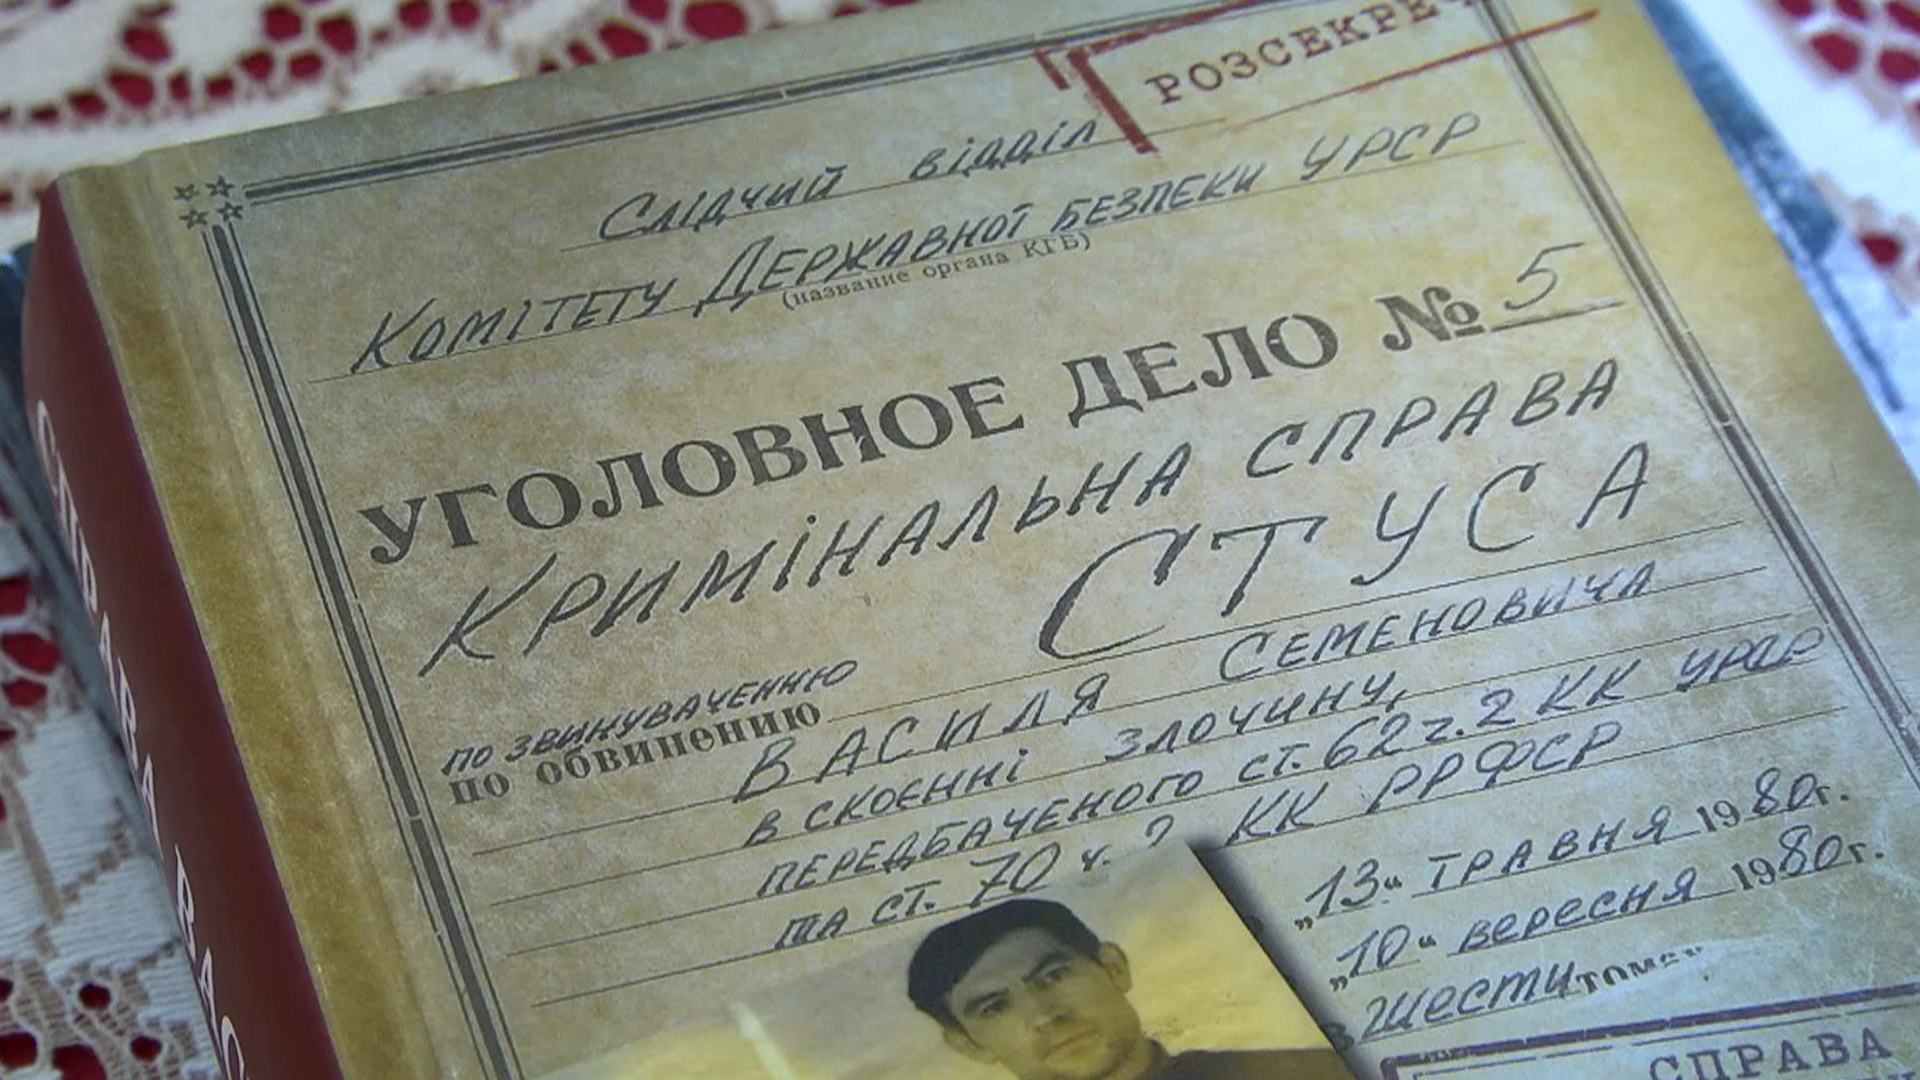 РОЗСЕКРЕЧ
Слідчий відділ
Комітету Державної безпеки УРСР
(название органа КГБ)
УГОЛОВНОЕ ДЕЛО № 5
КРИМІНАЛЬНА СПРАВА
СТУСА
по звинуваченню
по обвинению
ВАСИЛЯ СЕМЕНОВИЧА
в скоєнні злочину,
передбаченого ст. 62 ч. 2 КК УРСР
та ст. 70 ч. 2 КК РРФСР
„13“ травня 1980г.
„10“ вересня 1980г.
в шести томах
СПРАВА
СПРАВА ВАС